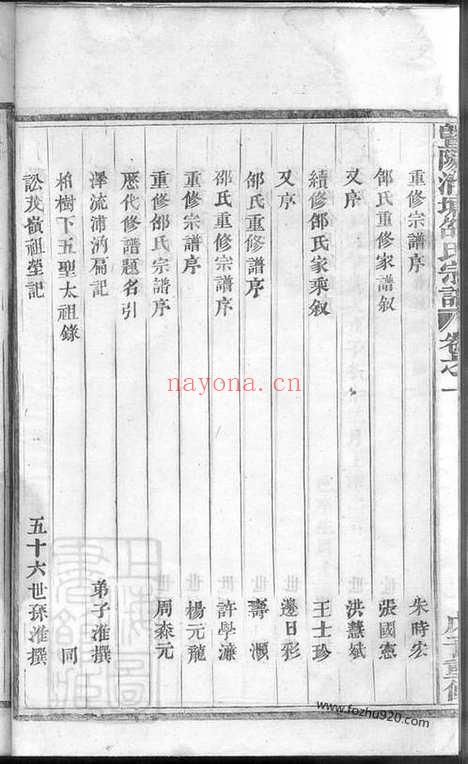 暨陽清塘邵氏宗譜 卷之一
重修宗譜序 朱時宏
邵氏重修家譜敘 張國憲
又序 洪慧斌
續修邵氏家乘敘 王士珍
又序 邊日彩
邵氏重修宗譜序 壽灝
邵氏重修宗譜序 許學濂
重修宗譜序 楊元龍
重修邵氏宗譜序 周森元
歷代修譜題名引
澤流浦汭扁記 弟子淮撰
柏樹下五聖太祖錄 同
訟茂嶺祖塋記 五十六世孫淮撰
nayona.cn
www.fozhu920.com